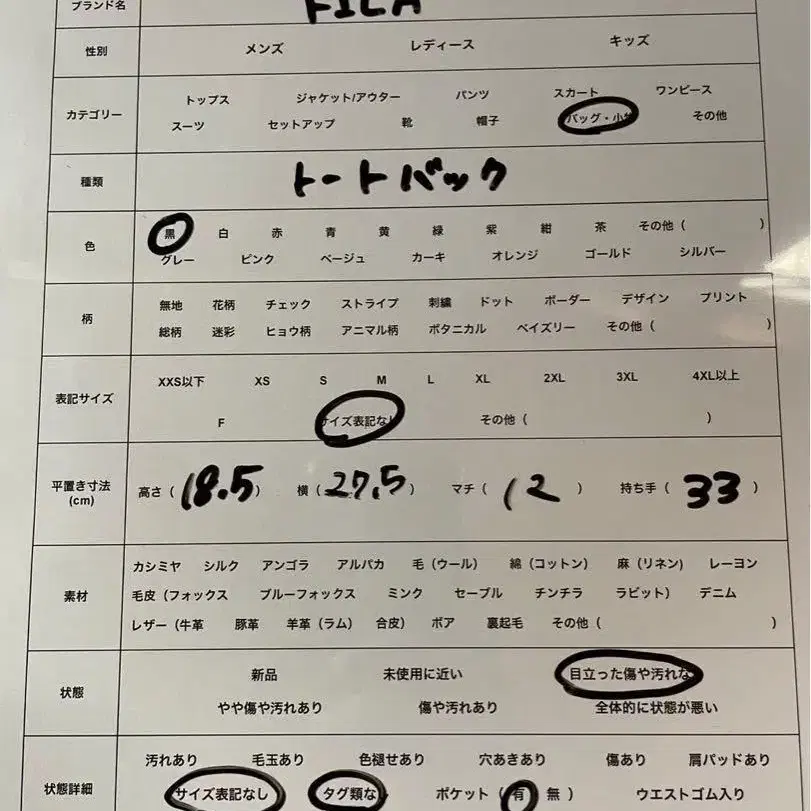 ブランド名 FILA
性別 メンズ レディース キッズ
トップス ジャケット/アウター パンツ スカート ワンピース
カテゴリー
スーツ セットアップ 靴 帽子 バッグ・小物 その他
種類 トートバック
黒 白 赤 青 黄 緑 紫 紺 茶 その他（ ）
色
グレー ピンク ベージュ カーキ オレンジ ゴールド シルバー
無地 花柄 チェック ストライプ 刺繍 ドット ボーダー デザイン プリント
柄
総柄 迷彩 ヒョウ柄 アニマル柄 ボタニカル ペイズリー その他（ ）
XXS以下 XS S M L XL 2XL 3XL 4XL以上
表記サイズ
F サイズ表記なし その他（ ）
平置き寸法
(cm)
高さ（18.5） 横（27.5） マチ（12） 持ち手（33）
カシミヤ シルク アンゴラ アルパカ 毛（ウール） 綿（コットン） 麻（リネン） レーヨン
素材 毛皮（フォックス ブルーフォックス ミンク セーブル チンチラ ラビット） デニム
レザー（牛革 豚革 羊革（ラム） 合皮） ボア 裏起毛 その他（ ）
新品 未使用に近い 目立った傷や汚れな
状態
やや傷や汚れあり 傷や汚れあり 全体的に状態が悪い
汚れあり 毛玉あり 色褪せあり 穴あきあり 傷あり 肩パッドあり
状態詳細
サイズ表記なし タグ類なし ポケット（有 無） ウエストゴム入り